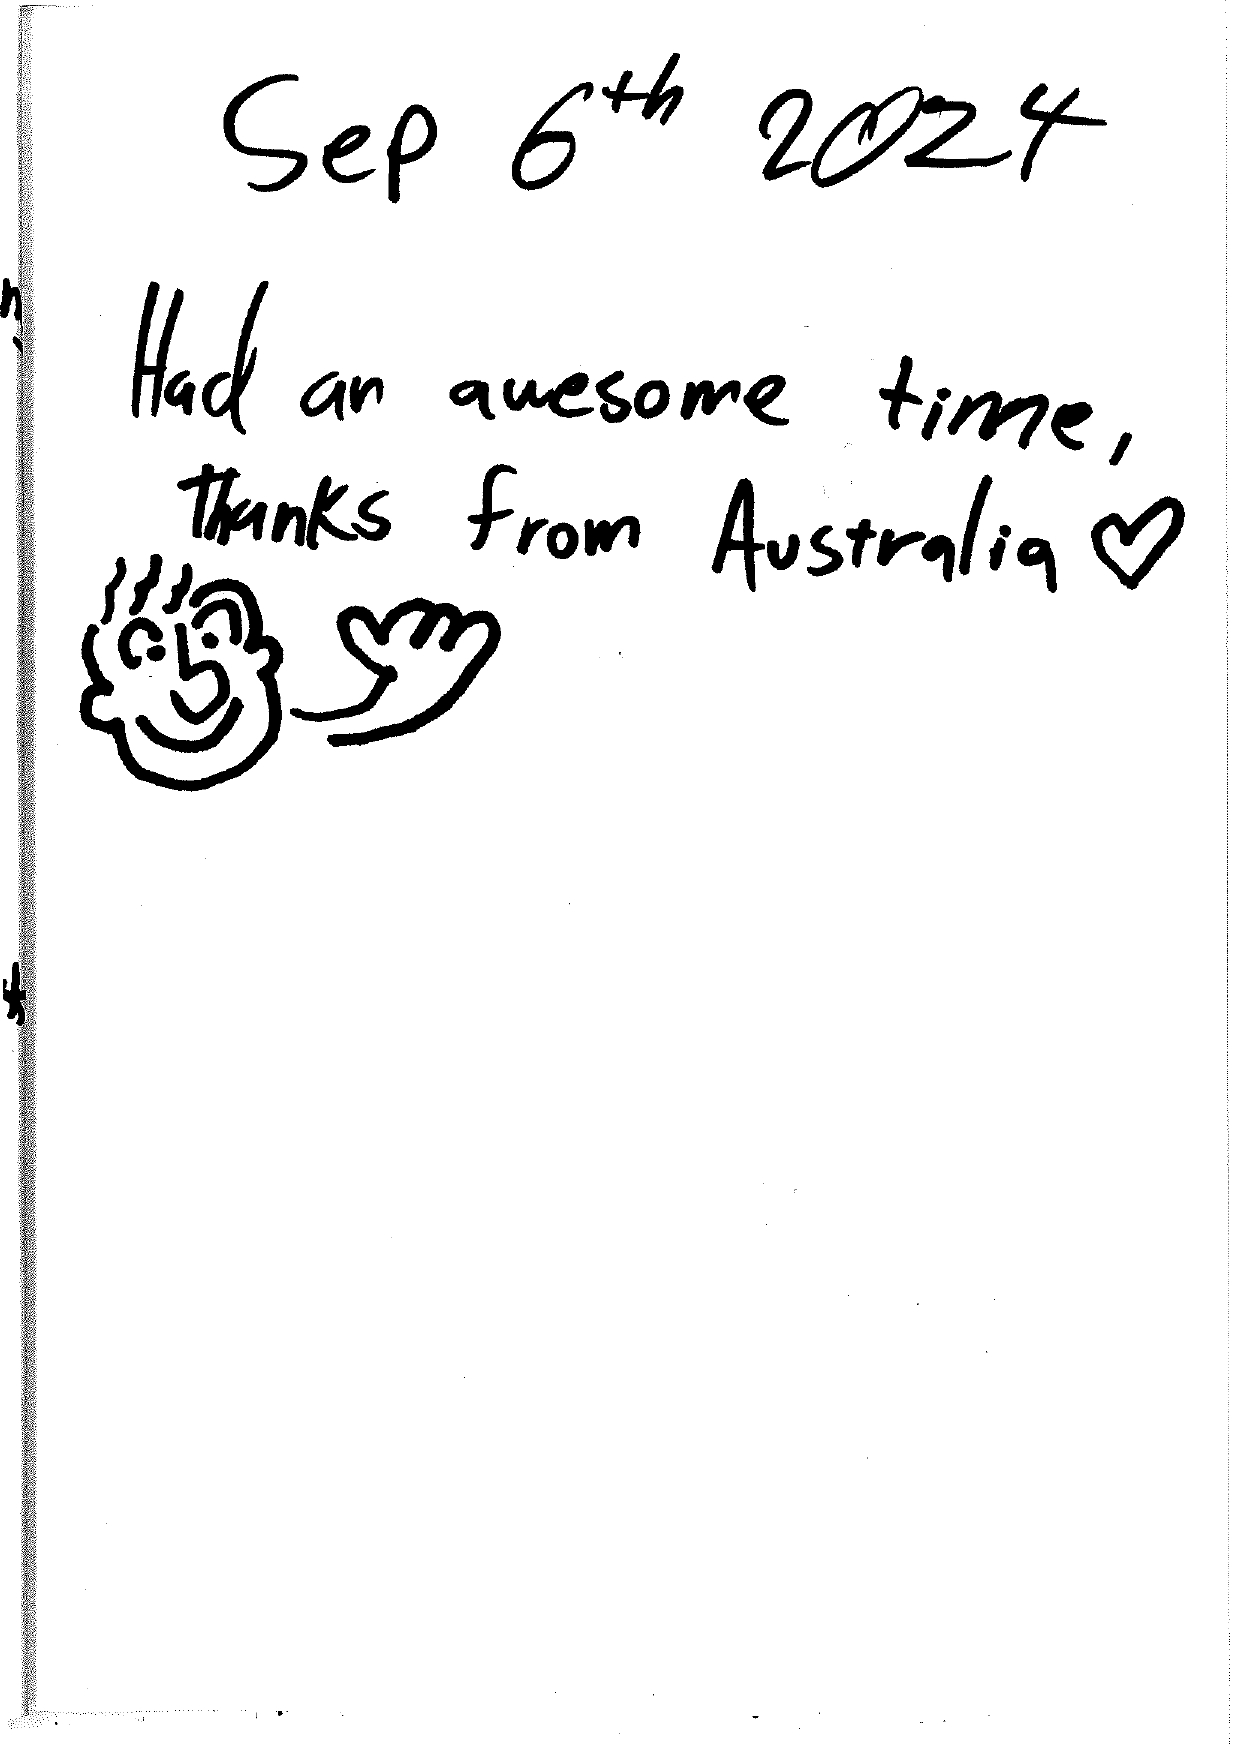 Sep 6th 2024
Had an awesome time,
thanks from Australia ♡